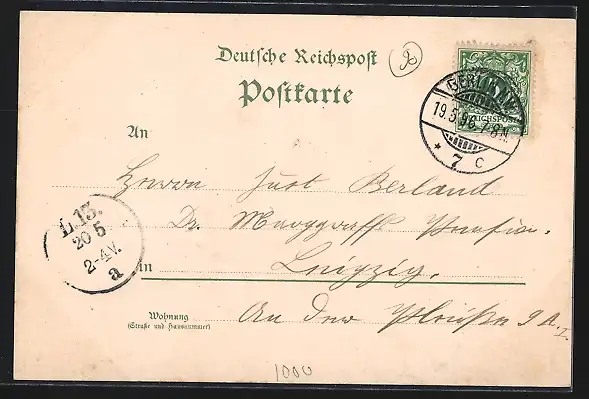 Deutsche Reichspost
Postkarte
REICHSPOST
BERLIN
19.5.96.7-8N.
* 7 c
An
Herrn Just Berland
Dr. Marggraff
L.13.
20 5
2-4V.
a
in Leipzig.
Wohnung
(Straße und Hausnummer)
An der Pleiße 9 A.I
1000